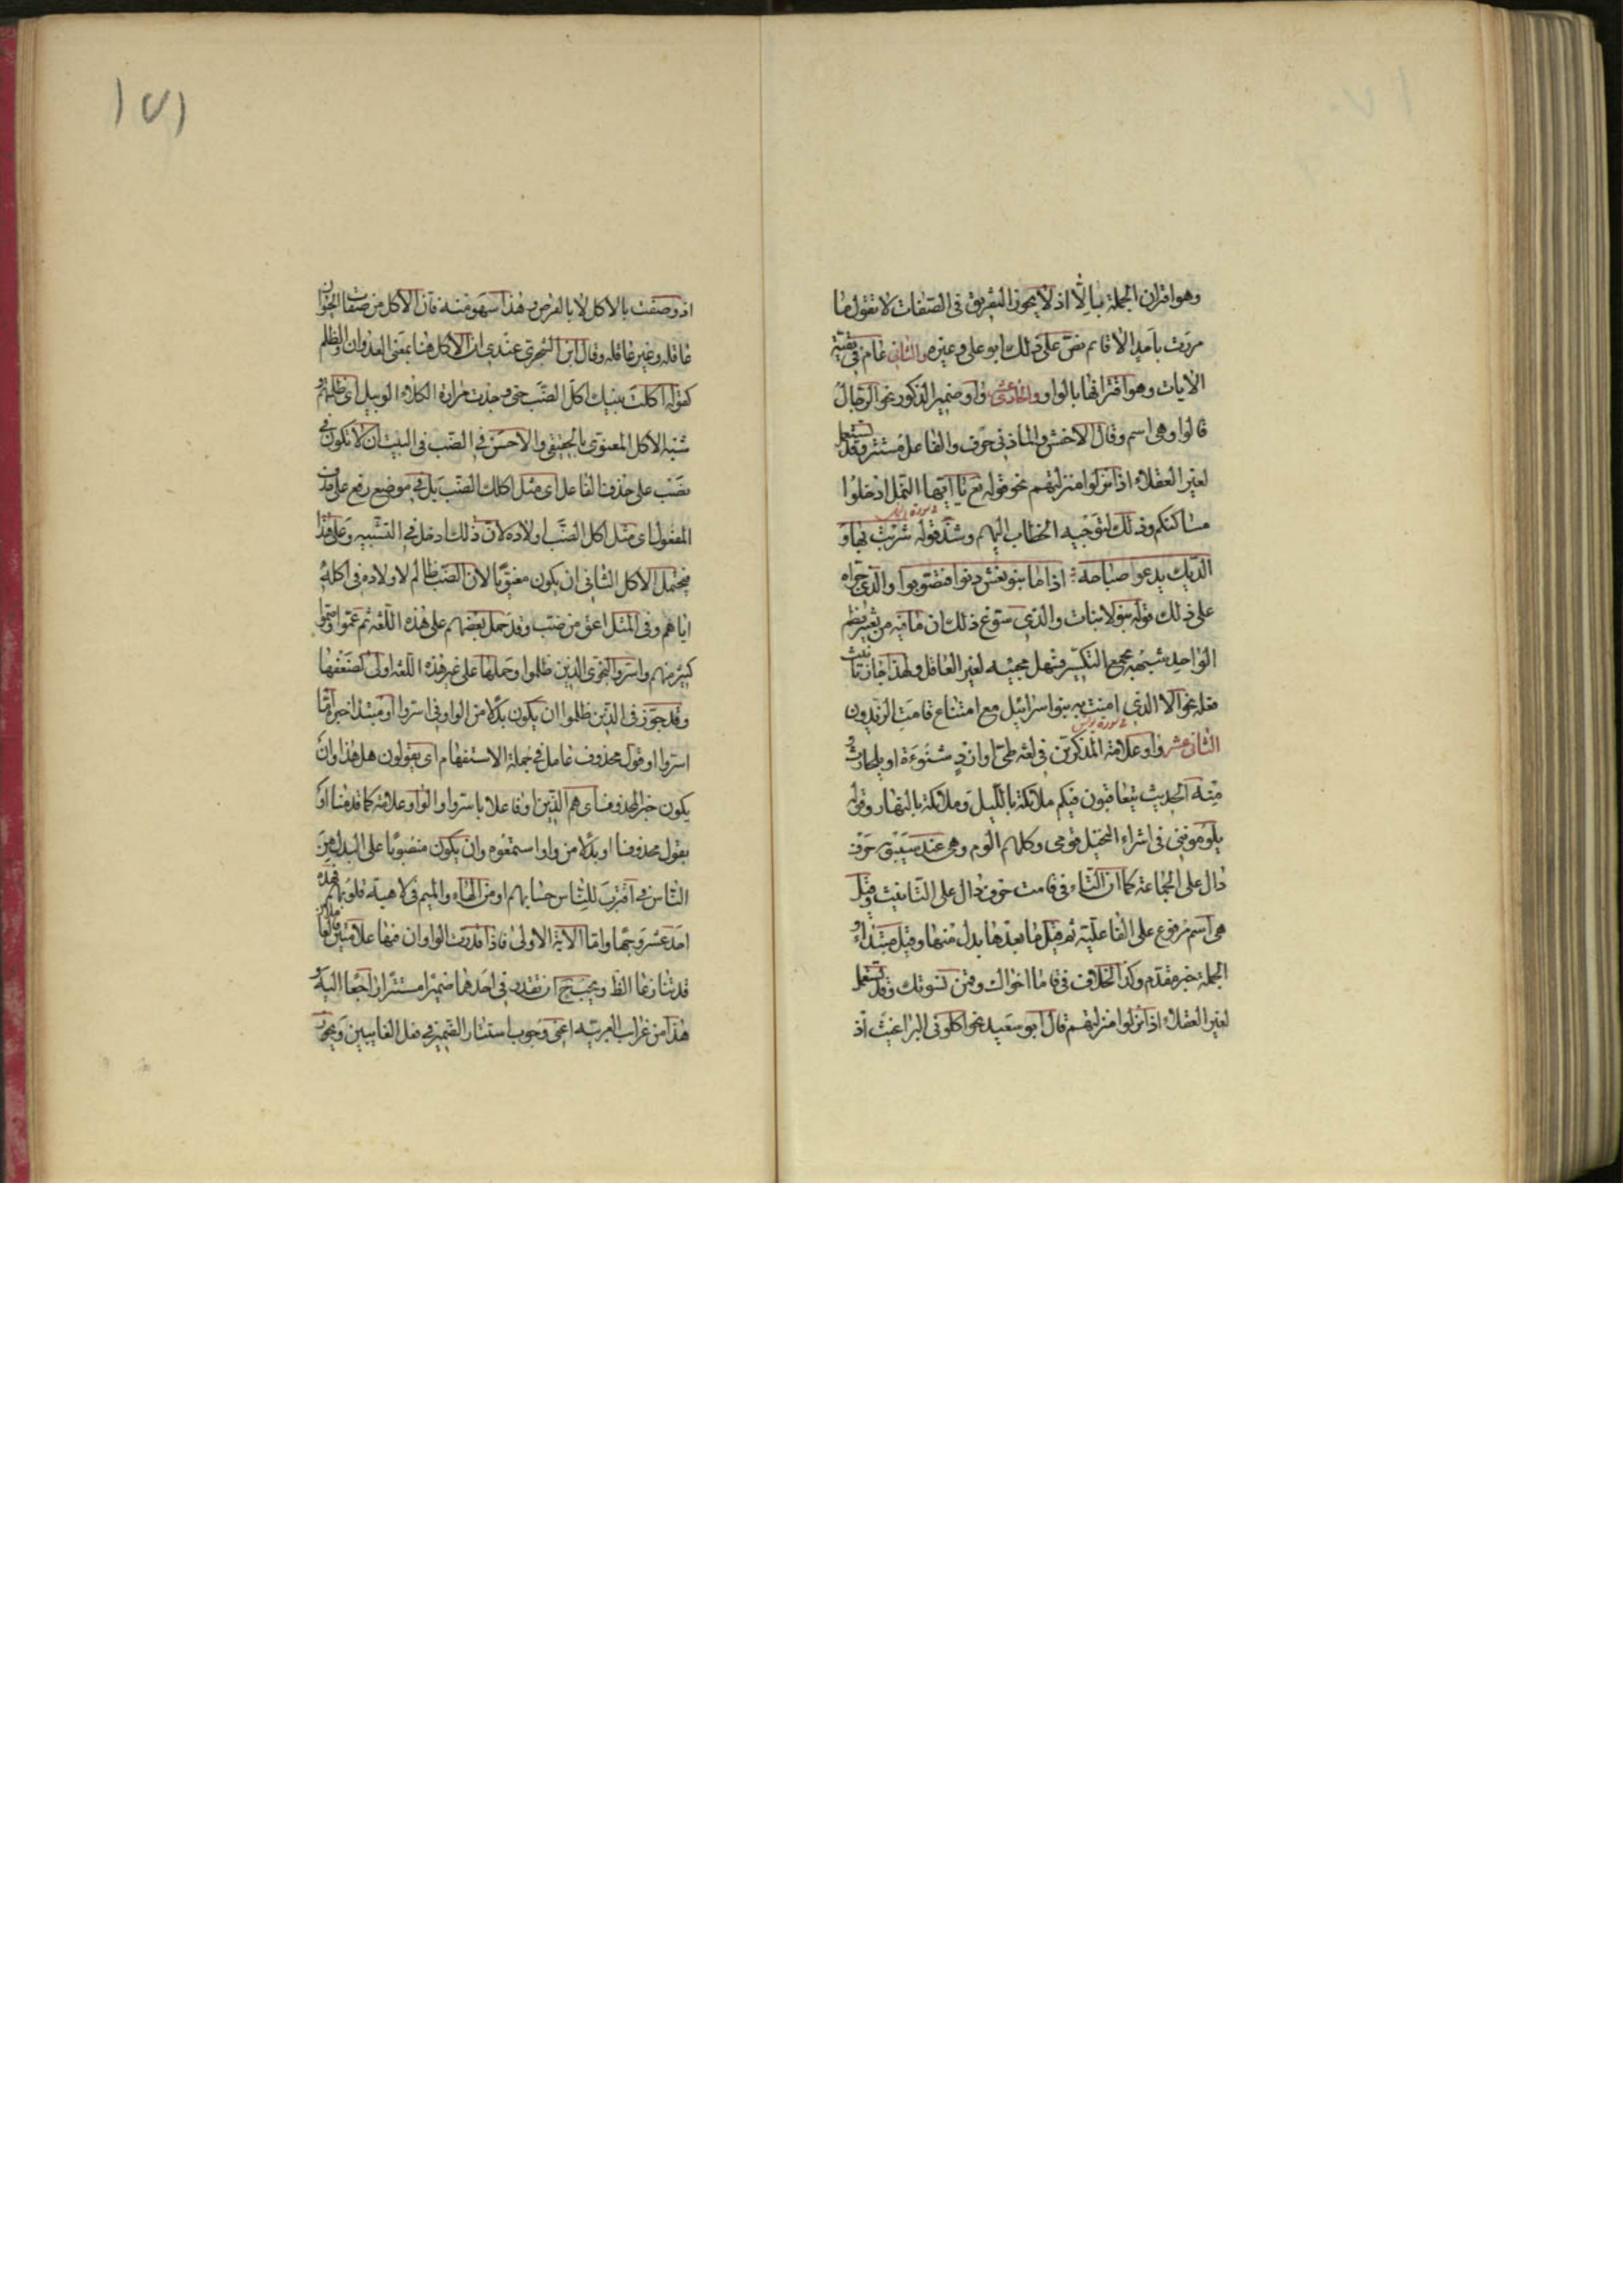 وهو اقتران الجملة بالا اذ لا يجوز التفريق فى الصفات لا تقول ما
مررت باحد الا قائم نص على ذلك ابو على وغيره والثانى عام فى بقية
الايات وهو اقترانها بالواو والحادى عشر واو ضمير الذكور نحو الرجال
قالوا وهى اسم وقال الاخفش والمازنى حرف والفاعل مستتر وقد تستعمل
لغير العقلاء اذا نزلوا منزلتهم نحو قوله تع يا ايها النمل ادخلوا
مساكنكم وذلك لتوجيه الخطاب اليهم وشذ قوله شربت بها و
الديك يدعو صباحه اذا ما بنو نعش دنوا فتصوبوا والذى جراه
على ذلك قوله بنو لا بنات والذى سوغ ذلك ان ما فيه من تغيير نظم
الواحد شبهه بجمع التكسير فسهل مجيئه لغير العاقل ولهذا جاز تانيث
فعله نحو الا الذى امنت به بنو اسرائيل مع امتناع قامت الزيدون
الثانى عشر واو علامة المذكرين فى لغة طى او ازد شنوءة او بلحارث و
منه الحديث يتعاقبون فيكم ملائكة بالليل وملائكة بالنهار وقوله
يلوموننى فى اشراء النخيل قومى وكلهم الوم وهى عند سيبويه حرف
دال على الجماعة كما ان التاء فى قامت حرف دال على التانيث وقيل
هى اسم مرفوع على الفاعلية ثم قيل ما بعدها بدل منها وقيل مبتداء و
الجملة خبر مقدم وكذا الخلاف فى قاما اخواك وقمن نسوتك وقد تستعمل
لغير العقلاء اذا نزلوا منزلتهم قال ابو سعيد نحو اكلونى البراغيث اذ
١٧١
اذ وصفت بالاكل لا بالقرص وهذا سهو منه فان الاكل من صفات الحيوان
عاقله وغير عاقله وقال ابن الشجرى عندى ان الاكل هنا بمعنى العدوان والظلم
كقوله اكلت بنيك اكل الضب حتى وجدت مرارة الكلاء الوبيل اى ظلمتهم و
شبه الاكل المعنوى بالحقيقى والاحسن فى الضب فى البيت ان لا تكون فى
نصب على حذف الفاعل اى مثل اكلك الضب بل فى موضع رفع على حذف
المفعول اى مثل اكل الضب اولاده لان ذلك ادخل فى التشبيه وعلى هذا
فيحتمل الاكل الثانى ان يكون معنويا لان الضب ظالم لاولاده فى اكله
اياهم وفى المثل اعق من ضب وقد حمل بعضهم على هذه اللغة ثم عموا وصموا
كثير منهم واسروا النجوى الذين ظلموا وحملها على غير هذه اللغة اولى لضعفها
وقد جوز فى الذين ظلموا ان يكون بدلا من الواو فى اسروا او مبتدا خبره اما
اسروا او قول محذوف عامل فى جملة الاستفهام اى يقولون هل هذا وان
يكون خبر المحذوف اى هم الذين او فاعلا باسروا والواو علامة كما قدمنا او
بقول محذوفا او بدلا من واو استمعوه وان يكون منصوبا على البدل من
الناس فى اقترب للناس حسابهم او من الهاء والميم فى لاهية قلوبهم فهذه
احد عشر وجها واما الاية الاولى فاذا قدرت الواوان فيها علامتين فالعاملان
قد تنازعا الظاهر ويجب ح ان تقدر فى احدهما ضميرا مستترا راجعا اليه و
هذا من غرائب العربية اعنى وجوب استتار الضمير فى فعل الغائبين ويجوز